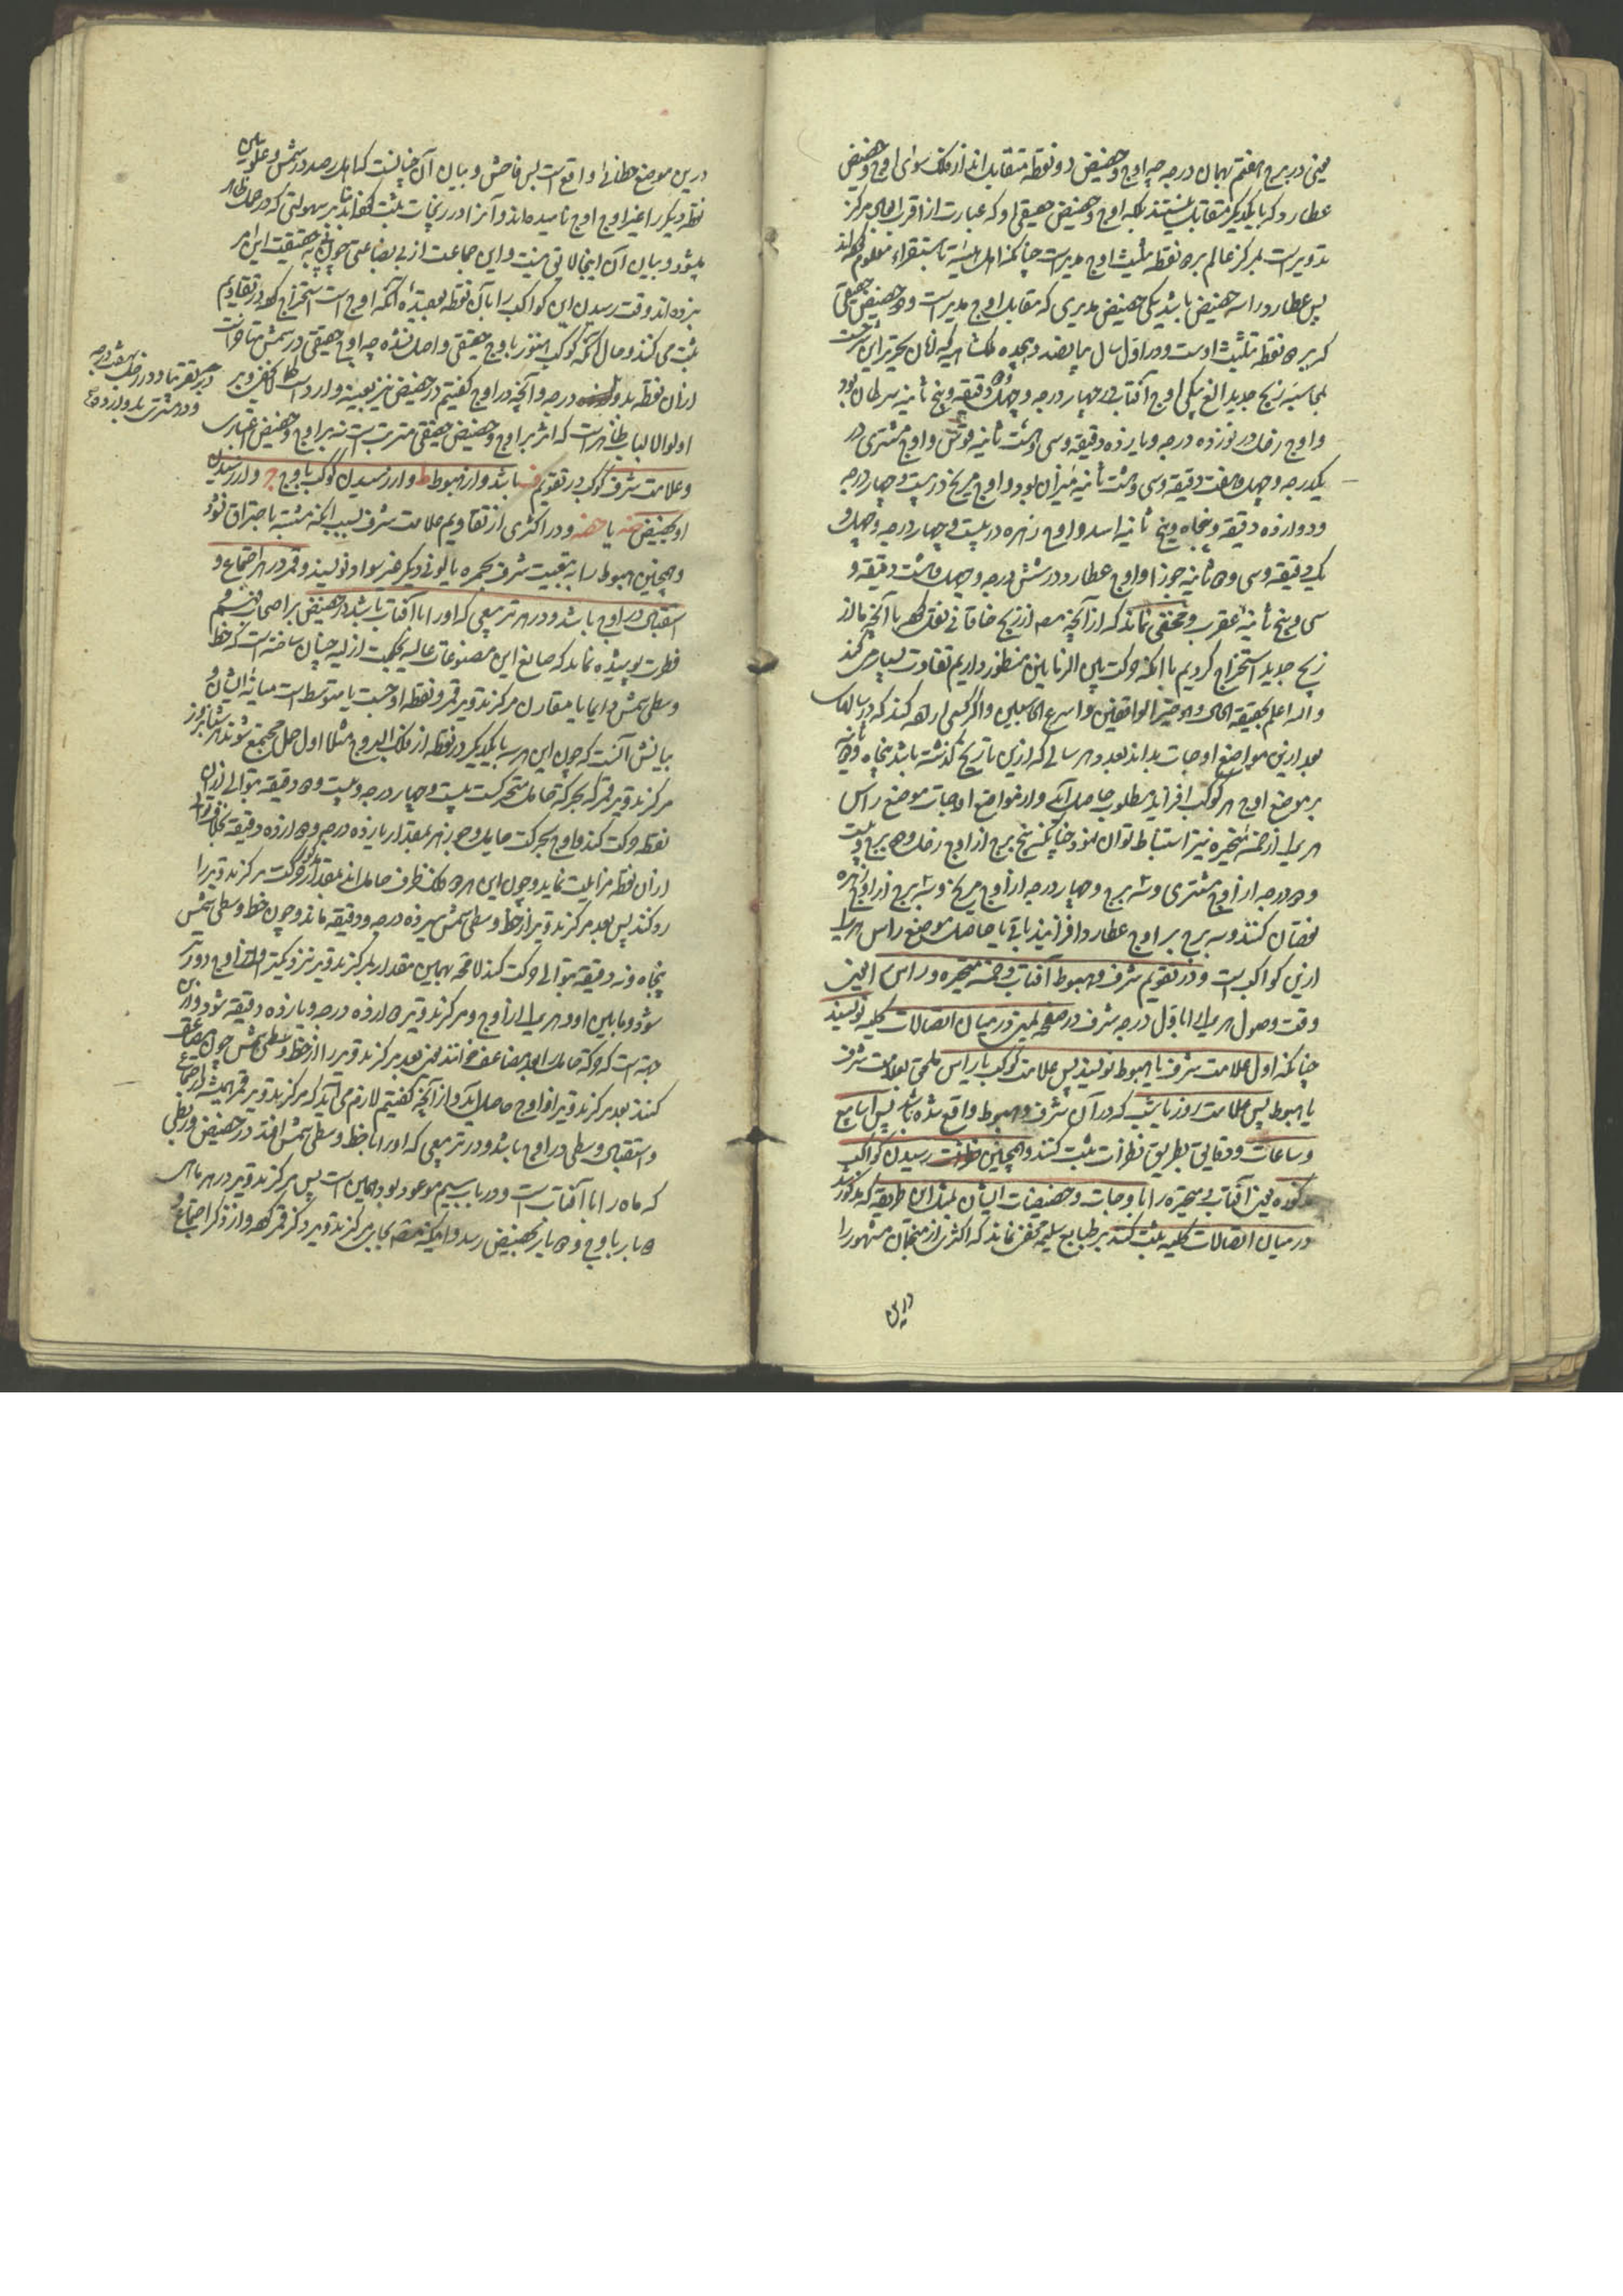 یعنی در برج هفتم بهمان درجه چه اوج و حضیض دو نقطه متقابل‌اند از فلک سوای اوج و حضیض
عطارد که با یکدیگر متقابل نیستند بلکه اوج و حضیض حقیقی او که عبارت از اقرب ابعاد مرکز
تدویرست بمرکز عالم بر دو نقطه تثلیث اوج مدیرست چنانکه اهل هیئة باستقراء معلوم کرده‌اند
پس عطارد را سه حضیض باشد یکی حضیض مدیری که مقابل اوج مدیرست و دو حضیض حقیقی
که بر دو نقطه تثلیث اوست و در اول سال پانصد و هجده ملکشاهیه که زمان تحریر این شرحست
بمحاسبه زیج جدید الغ بیکی اوج آفتاب در چهار درجه و چهل دقیقه و پنج ثانیه سرطان بود
و اوج زحل در نوزده درجه و یازده دقیقه و سی و هشت ثانیه قوس و اوج مشتری در
یکدرجه و چهل و هفت دقیقه و سی و هشت ثانیه میزان بود و اوج مریخ در بیست و چهار درجه
و دوازده دقیقه و پنجاه و پنج ثانیه اسد و اوج زهره در بیست و چهار درجه و چهل و
یک دقیقه و سی و دو ثانیه جوزا و اوج عطارد در شش درجه و چهل و هشت دقیقه و
سی و پنج ثانیه عقرب و مخفی نماند که از آنچه مصـ از زیج خاقانی نقل کرده با آنچه ما از
زیج جدید استخراج کردیم با آنکه حرکت بین الزمانین منظور داریم تفاوت بسیار می کند
والله اعلم بحقیقة الحال وهو خیر الواقفین و اسرع الحاسبین و اگر کسی اراده کند که در سالهای
بعد ازین مواضع اوجات بداند بعدد هر سالی که ازین تاریخ گذشته باشد پنجاه و دو ثانیه
بر موضع اوج هر کوکب افزاید مطلوب حاصل آید و از مواضع اوجات موضع راس
هر یک از خمسه متحیره نیز استنباط توان نمود چنانکه پنج برج از اوج زحل و دو برج و بیست
و دو درجه از اوج مشتری و سه برج و چهار درجه از اوج مریخ و سه برج از اوج زهره
نقصان کنند و سه برج بر اوج عطارد افزایند باقی یا حاصل موضع راس هر یک
ازین کواکب است و در تقویم شرف و هبوط آفتاب و خمسه متحیره و راس یعنی
وقت وصول هر یک را باول درجه شرف در صفحه یمین در میان اتصالات کلیه نویسند
چنانکه اول علامت شرف یا هبوط نویسند پس علامت کوکب یا راس ملحق بعلامت شرف
یا هبوط پس علامت روز یا شب که در آن شرف و هبوط واقع شده باشد پس اسابیع
و ساعات و دقایق بطریق نظرات ثبت کنند و همچنین رسیدن کواکب
مذکوره یعنی آفتاب و متحیره را باوجات و حضیضات ایشان بمثل این طریقه که مذکور شد
در میان اتصالات کلیه ثبت کنند بر طبایع سلیمه مخفی نماند که اکثری از منجمان مشهور را
درین
درین موضع خطائی واقع است بس فاحش و بیان آن چنانست که اهل رصد در شمس و علویین
نقطه دیگر را غیر اوج اوج نامیده‌اند و آنرا در زیجات ثبت کرده‌اند بنابر سهولتی که در عمل ظاهر
میشود و بیان آن اینجا لایق نیست و این جماعت از بی بضاعتی چون پی بحقیقت این امر
نبرده‌اند وقت رسیدن این کواکب را بآن نقطه بعقیده آنکه اوج است استخراج کرده در تقاویم
ثبت می کنند و حال آنکه کوکب هنوز باوج حقیقی واصل نشده چه اوج حقیقی در شمس متفاوتست
از آن نقطه بدو درجه و آنچه در اوج گفتیم در حضیض نیز بعینه وارد است
دیگر تقریبا و در زحل بهفت درجه
و در مشتری بدوازده درجه
اولو الالباب ظاهرست که اثر بر اوج و حضیض حقیقی مترتب است نه بر اوج و حضیض اعتباری
و علامت شرف کوکب در تقویم ف باشد و از هبوط ط و از رسیدن کوکب باوج ج و از رسیدن
او بحضیض حضه یا هضه و در اکثری از تقاویم علامت شرف بسبب آنکه مشتبه باحتراق نشود
و همچنین هبوط را به تبعیت شرف بحمره یا لونی دیگر غیر سواد نویسند و قمر در هر اجتماع و
استقبالی در اوج باشد و در هر تربیعی که او را با آفتاب باشد در حضیض بر اصحاب فهم و
فطرت پوشیده نماند که صانع این مصنوعات عالیه بحکمت ازلیه چنان ساخته است که خط
وسطی شمس دایما یا مقارن مرکز تدویر قمر و نقطه اوجست یا متوسط است میانه ایشان و
بیانش آنست که چون این هر سه با یکدیگر در نقطه از فلک البروج مثلا اول حمل مجتمع شوند
مرکز تدویر قمر بحرکة حامل متحرکست بیست و چهار درجه و بیست و دو دقیقه بتوالی از آن
نقطه حرکت کند و اوج بحرکت مایل و جوزهر بمقدار یازده درجه و دوازده دقیقه بخلاف توالی
از آن نقطه مزایلت نماید و چون این هر دو فلک ظرف حامل‌اند بمقدار حرکت مرکز تدویر را
رد کنند پس بعد مرکز تدویر از خط وسطی شمس سیزده درجه و دقیقه ماند و چون خط وسطی شمس
پنجاه و نه دقیقه بتوالی حرکت کند لا محاله بهمین مقدار بمرکز تدویر نزدیکتر و از اوج دورتر
شود و مابین او و هر یک از اوج و مرکز تدویر دوازده درجه و یازده دقیقه شود و ازین
جهة است که حرکة حامل را بعد مضاعف خوانند یعنی بعد مرکز تدویر را از خط وسطی شمس چون مضاعف
کنند بعد مرکز تدویر از اوج حاصل آید و از آنچه گفتیم لازم می آید که مرکز تدویر قمر همیشه در اجتماع
و استقبال وسطی در اوج باشد و در تربیعی که او را با خط وسطی شمس افتد در حضیض و ربطی
که ماه را با آفتاب است و در باب سیم موعود بود همین است پس مرکز تدویر در هر ماهی
دو بار باوج و دو بار بحضیض رسد و اینکه مصـ بجای مرکز تدویر ذکر قمر کرده و از ذکر اجتماع و